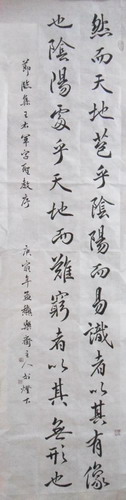 然而天地苞乎陰陽而易識者以其有像
也陰陽處乎天地而難窮者以其無形也
節臨集王右軍字聖教序
庚寅年益顯樂齋主人於燈下